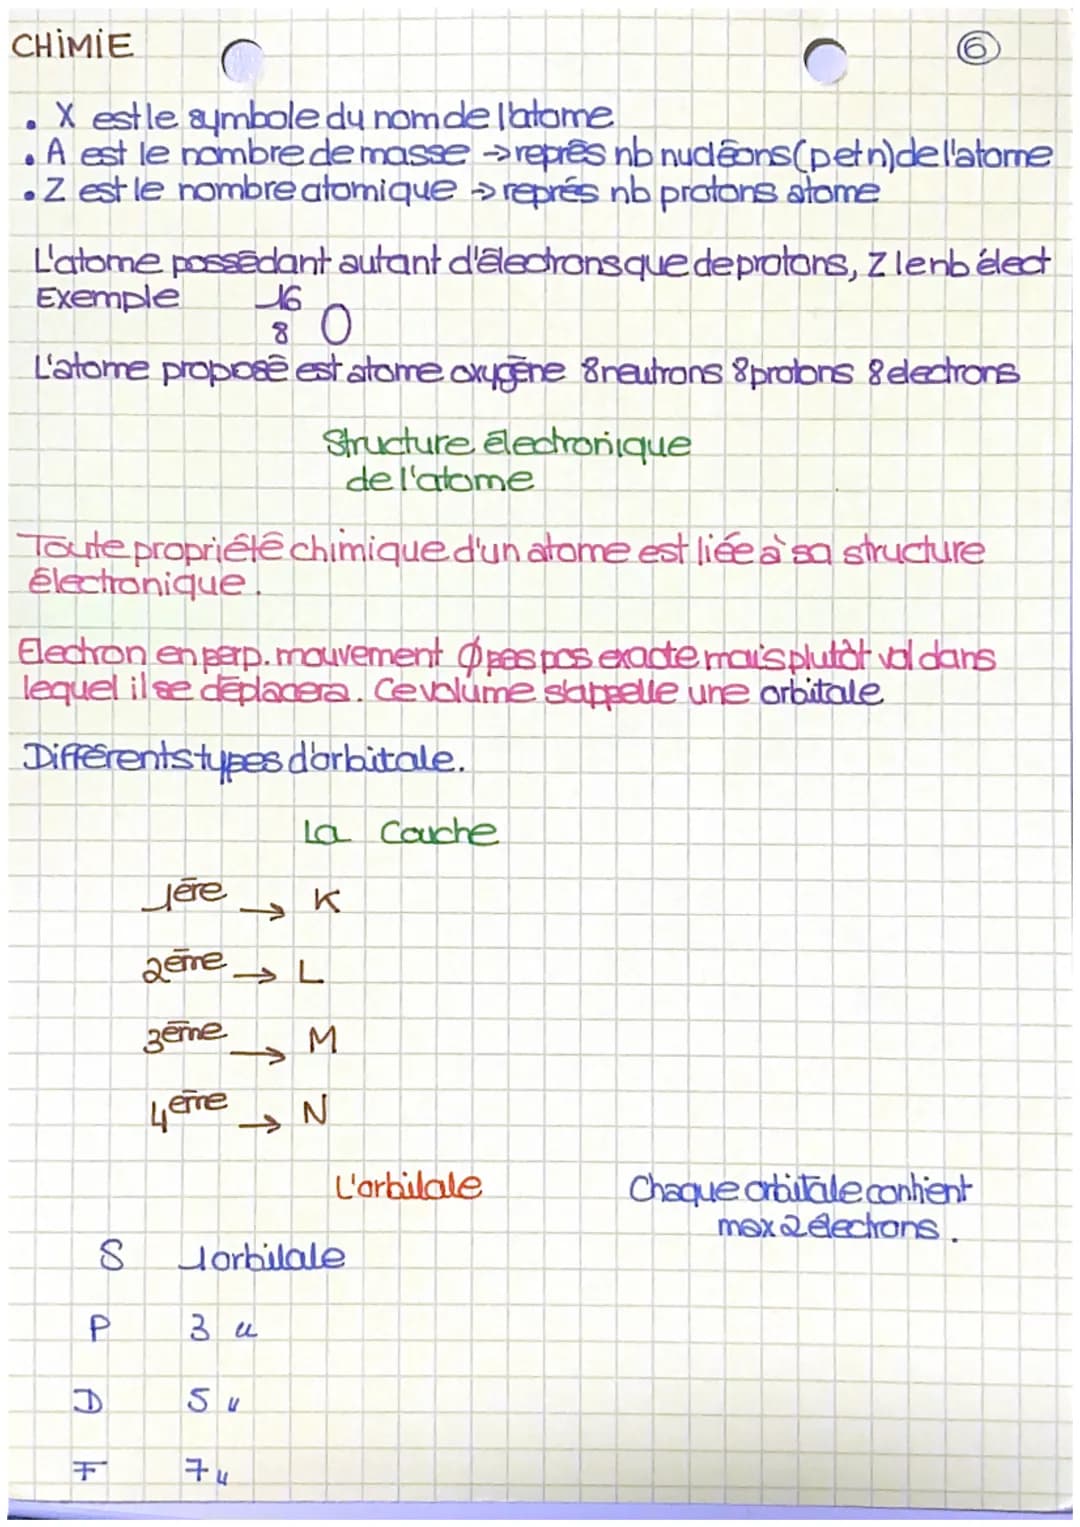 CHIMIE
6
• X est le symbole du nom de l'atome
• A est le nombre de masse → représ nb nucléons (p et n) de l'atome
• Z est le nombre atomique → représ nb protons atome
L'atome possédant autant d'électrons que de protons, Z le nb élect
Exemple 16
8 O
L'atome proposé est atome oxygène 8 neutrons 8 protons 8 electrons
Structure électronique
de l'atome
Toute propriété chimique d'un atome est liée à sa structure
électronique.
Electron en perp. mouvement ∅ pas pos exacte mais plutôt vol dans
lequel il se déplacera. Ce volume s'appelle une orbitale
Différents types d'orbitale.
La Couche
1ère → K
2ème → L
3ème → M
4ème → N
L'orbitale
Chaque orbitale contient
max 2 électrons.
S 1 orbitale
P 3 "
D 5 "
F 7 "